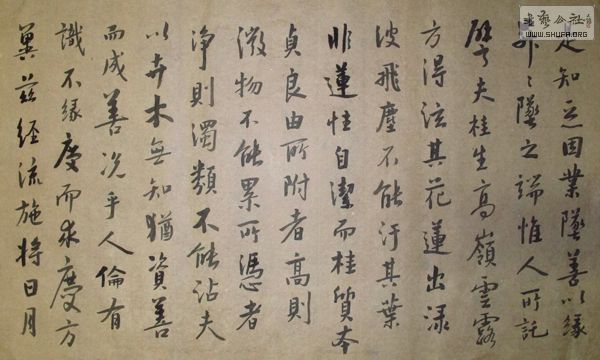 是知惡因業墜善以緣
昇〻墜之端惟人所託
譬夫桂生高嶺雲露
方得泫其花蓮出淥
波飛塵不能汙其葉
非蓮性自潔而桂質本
貞良由所附者高則
微物不能累所憑者
淨則濁類不能沾夫
以卉木無知猶資善
而成善況乎人倫有
識不緣慶而求慶方
冀茲經流施將日月
書藝公社
WWW.SHUFA.ORG